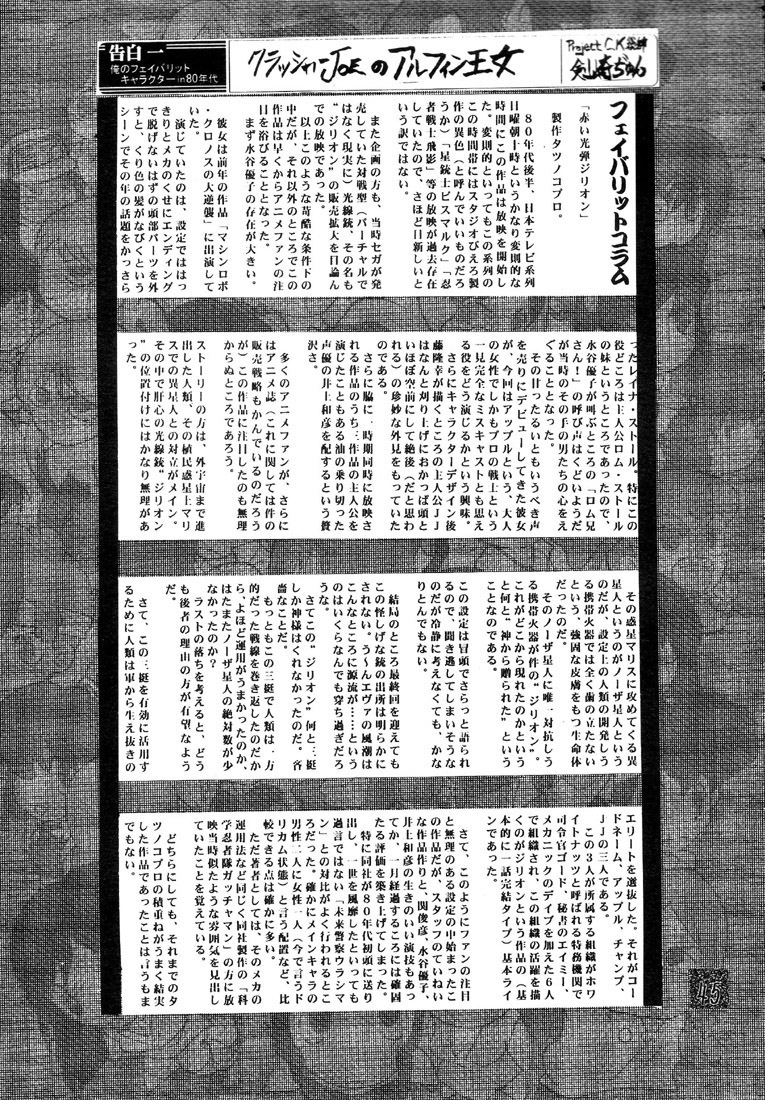 告白一
俺のフェイバリット
キャラクター in 80年代
クラッシャーJOEのアルフィン王女
Project C.K.総帥
剣崎ぢゅん
フェイバリットコラム
「赤い光弾ジリオン」
製作タツノコプロ。
80年代後半、日本テレビ系列
日曜朝十時というかなり変則的な
時間にこの作品は放映を開始し
た。変則的といってもこの系列の
この時間帯にはスタジオぴえろ製
作の異色（と呼んでいいものだろ
うか）「星銃士ビスマルク」「忍
者戦士飛影」等の放映が過去存在
していたので、さほど目新しいと
いう訳ではない。
また企画の方も、当時セガが発
売していた対戦型（バーチャルで
はなく現実に）光線銃、その名も
“ジリオン”の販売拡大を目論ん
での放映であった。
以上このような苛酷な条件下の
中だが、それ以外のところでこの
作品は早くからアニメファンの注
目を浴びることとなった。
まず水谷優子の存在が大きい。
彼女は前年の作品「マシンロボ
・クロノスの大逆襲」に出演して
いた。
演じていたのは、設定でははっ
きりとメカのくせにエンディング
で脱げないはずの頭部パーツを外
すと、くり色の髪がなびくという
シーンでその年の話題をかっさら
ったレイナ・ストール。特にこの
役どころは主人公ロム・ストール
の妹というところであったので、
水谷優子が叫ぶところの「ロム兄
さん！」の呼び声はくどいようだ
が当時のその手の男たちの心をえ
ぐることとなった。
その甘ったるいともいうべき声
を売りにデビューしてきた彼女
が、今回はアップルという、大人
の女性でしかもプロの戦士という
一見完全なミスキャストとも思え
る役をどう演じるかという興味。
さらにキャラクターデザイン後
藤隆幸が描くところの主人公JJ
はなんと刈り上げにおかっぱ頭と
いうほぼ空前にして絶後（だと思わ
れる）の珍妙な外見をもっていた
のである。
さらに脇に一時期同時に放映さ
れる作品のうち三作品の主人公を
演じたこともある油の乗り切った
声優の井上和彦を配するという贅
沢さ。
多くのアニメファンが、さらに
はアニメ誌（これに関しては件の
販売戦略もかんでいるのだろう
が）この作品に注目したのも無理
からぬところであろう。
ストーリーの方は、外宇宙まで進
出した人類、その植民惑星上マリ
スでの異星人との対立がメイン。
その中で肝心の光線銃“ジリオン
”の位置付けにはかなり無理があ
った。
その惑星マリスに攻めてくる異
星人というのがノーザ星人という
のだが、設定上の人類の開発しう
る携帯火器では全く歯の立たない
という、強固な皮膚をもつ生命体
だったのだ。
そのノーザ星人に唯一対抗しう
る携帯火器が件の“ジリオン”。
これがどこから現れたのかという
と何と“神から贈られた”という
ことなのである。
この設定は冒頭でさらっと語られ
るので、聞き逃してしまいそうな
のだが冷静に考えなくても、かな
りとんでもない。
結局のところ最終回を迎えても
この怪しげな銃の出所は明らかに
されない。う〜んエヴァの風潮は
こんなところに源流が…という
のはいくらなんでも穿ち過ぎだろ
うな。
さてこの“ジリオン”何と三挺
しか神様はくれなかったのだ。吝
嗇なことだ。
もっともこの三挺で人類は一方
的だった戦線を巻き返したのだか
ら、よほど運用がうまかったのか、
はたまたノーザ星人の絶対数が少
なかったのか？
ラストの落ちを考えると、どう
も後者の理由の方が有望なよう
だ。
さて、この三挺を有効に活用す
るために人類は軍から生え抜きの
エリートを選抜した。それがコー
ドネーム、アップル、チャンプ、
JJの三人である。
この3人が所属する組織がホワ
イトナッツと呼ばれる特務機関で
司令官ゴード、秘書のエイミー、
メカニックのデイブを加えた6人
で組織され、この組織の活躍を描
くのがジリオンという作品の（基
本的に一話完結タイプ）基本ライ
ンであった。
さて、このようにファンの注目
と無理のある設定の中始まったこ
の作品だが、スタッフのていねい
な作品作りと、関俊彦、水谷優子、
井上和彦の生きのいい演技もあっ
てか、一月経過するころには確固
たる評価を築き上げてしまった。
特に同社が80年代初頭に送り
出し、一世を風靡したといっても
過言ではない「未来警察ウラシマ
ン」との対比がよく行われるとこ
ろだった。確かにメインキャラの
男性二人に女性一人（今で言うド
リカム状態）と言う配置など、比
較できる点は確かに多い。
ただ著者としては、そのメカの
運用法など同じく同社製作の「科
学忍者隊ガッチャマン」の方に放
映当時似たような雰囲気を見出し
ていたことを覚えている。
どちらにしても、それまでのタ
ツノコプロの積重ねがうまく結実
した作品であったことは言うもま
でもない。
15